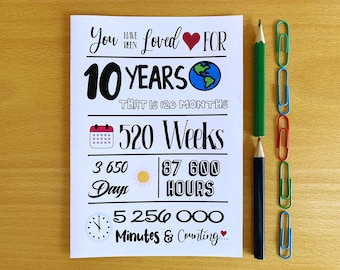 You HAVE BEEN Loved FOR
10 YEARS
THAT IS 120 MONTHS
520 Weeks
3 650 Days
87 600 HOURS
5 256 000
Minutes & Counting...